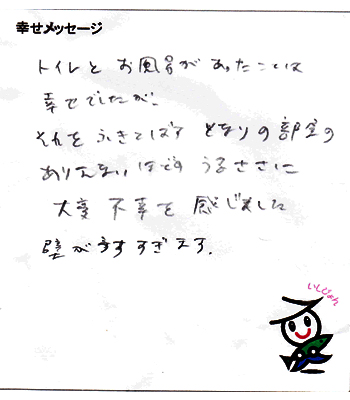 幸せメッセージ
トイレと お風呂が あったことは
幸せでしたが、
それを ふきとばす となりの部屋の
ありえないほどの うるささに
大変 不幸を 感じました
壁がうすすぎます。